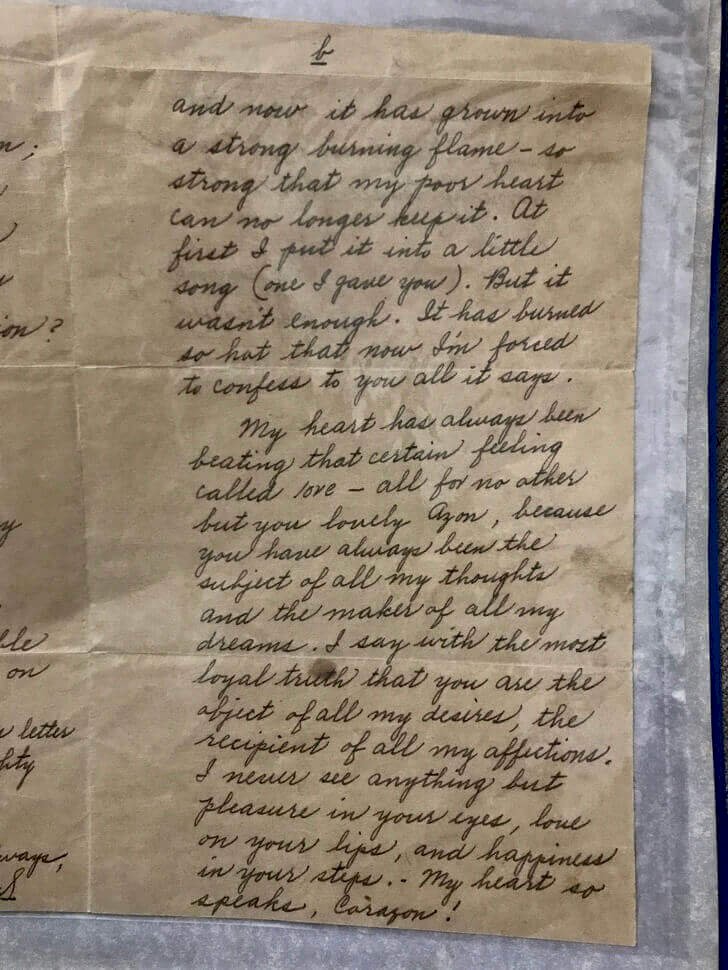 n;
ion?
y
ble
on
letter
hty
ways,
b
and now it has grown into
a strong burning flame – so
strong that my poor heart
can no longer keep it. At
first I put it into a little
song (one I gave you). But it
wasn't enough. It has burned
so hot that now I'm forced
to confess to you all it says.
My heart has always been
beating that certain feeling
called love – all for no other
but you lovely Azon, because
you have always been the
subject of all my thoughts
and the maker of all my
dreams. I say with the most
loyal truth that you are the
object of all my desires, the
recipient of all my affections.
I never see anything but
pleasure in your eyes, love
on your lips, and happiness
in your steps. - My heart so
speaks, Corazon!